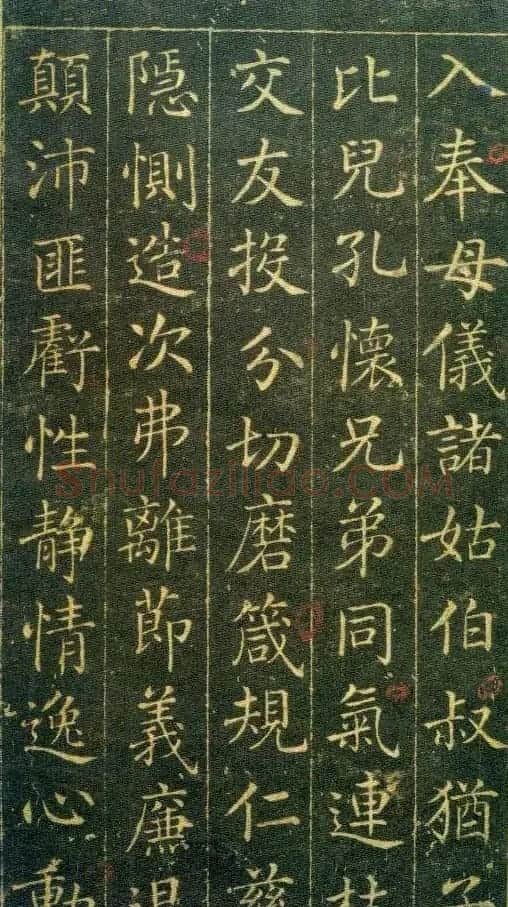 入奉母儀諸姑伯叔猶子
比兒孔懷兄弟同氣連枝
交友投分切磨箴規仁慈
隱惻造次弗離節義廉退
顛沛匪虧性静情逸心動
Shufaziliao.COM